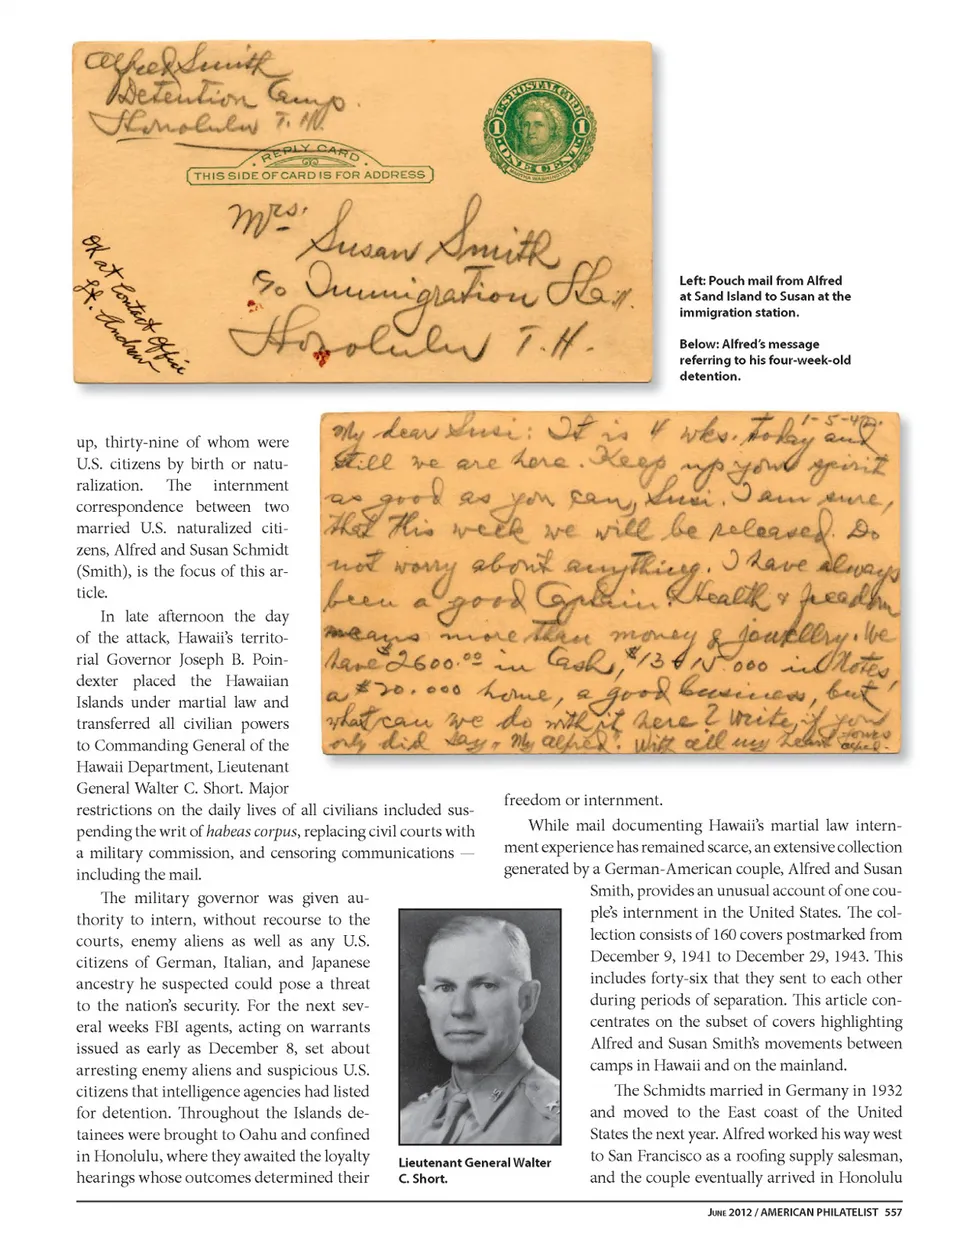 Alfred Smith
Detention Camp.
Honolulu T.H.
U.S. POSTAL CARD
1 1
ONE CENT
MARTHA WASHINGTON
REPLY CARD
THIS SIDE OF CARD IS FOR ADDRESS
Mrs.
Susan Smith
c/o Immigration Sta.
Honolulu T.H.
OK at Contact Office
Lt. Andrew
Left: Pouch mail from Alfred
at Sand Island to Susan at the
immigration station.
Below: Alfred's message
referring to his four-week-old
detention.
1-5-42.
My dear Susi: It is 4 wks. today and
still we are here. Keep up your spirit
as good as you can, Susi. I am sure,
that this week we will be released. Do
not worry about anything. I have always
been a good Captain. Health & freedom
means more than money & jewellry. We
have $2600.00 in Cash, $13 & 15.000 in Notes,
a $20.000 home, a good business, but
what can we do with it here? Write, if you
only did say, "My Alfred". With all my heart yours
Alfred.
up, thirty-nine of whom were
U.S. citizens by birth or natu-
ralization. The internment
correspondence between two
married U.S. naturalized citi-
zens, Alfred and Susan Schmidt
(Smith), is the focus of this ar-
ticle.
In late afternoon the day
of the attack, Hawaii's territo-
rial Governor Joseph B. Poin-
dexter placed the Hawaiian
Islands under martial law and
transferred all civilian powers
to Commanding General of the
Hawaii Department, Lieutenant
General Walter C. Short. Major
restrictions on the daily lives of all civilians included sus-
pending the writ of habeas corpus, replacing civil courts with
a military commission, and censoring communications —
including the mail.
The military governor was given au-
thority to intern, without recourse to the
courts, enemy aliens as well as any U.S.
citizens of German, Italian, and Japanese
ancestry he suspected could pose a threat
to the nation's security. For the next sev-
eral weeks FBI agents, acting on warrants
issued as early as December 8, set about
arresting enemy aliens and suspicious U.S.
citizens that intelligence agencies had listed
for detention. Throughout the Islands de-
tainees were brought to Oahu and confined
in Honolulu, where they awaited the loyalty
hearings whose outcomes determined their
freedom or internment.
While mail documenting Hawaii's martial law intern-
ment experience has remained scarce, an extensive collection
generated by a German-American couple, Alfred and Susan
Smith, provides an unusual account of one cou-
ple's internment in the United States. The col-
lection consists of 160 covers postmarked from
December 9, 1941 to December 29, 1943. This
includes forty-six that they sent to each other
during periods of separation. This article con-
centrates on the subset of covers highlighting
Alfred and Susan Smith's movements between
camps in Hawaii and on the mainland.
The Schmidts married in Germany in 1932
and moved to the East coast of the United
States the next year. Alfred worked his way west
to San Francisco as a roofing supply salesman,
and the couple eventually arrived in Honolulu
Lieutenant General Walter
C. Short.
June 2012 / AMERICAN PHILATELIST 557